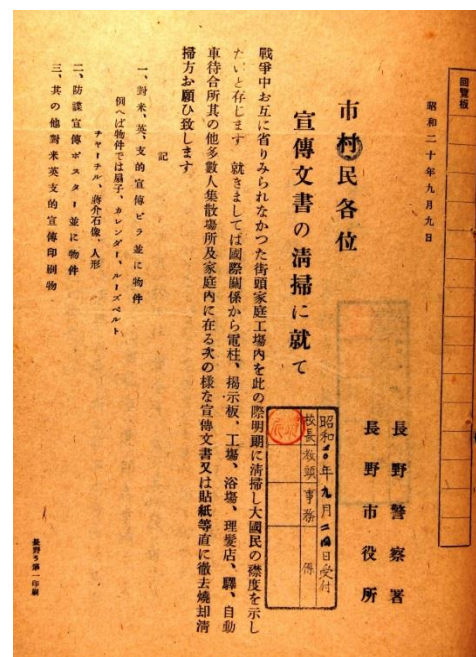 回覧板
昭和二十年九月九日
長野警察署
長野市役所
市村民各位
宣傳文書の淸掃に就て
戰爭中お互に省りみられなかつた街頭家庭工場內を此の際明朗に淸掃し大國民の襟度を示し
たいと存じます 就きましては國際關係から電柱、揭示板、工場、浴場、理髮店、驛、自動
車待合所其の他多數人集散場所及家庭內に在る次の樣な宣傳文書又は貼紙等直に徹去燒却淸
掃方お願ひ致します
記
一、對米、英、支的宣傳ビラ並に物件
例へば物件では扇子、カレンダー、ルーズベルト
チャーチル、蔣介石像、人形
二、防諜宣傳ポスター並に物件
三、其の他對米英支的宣傳印刷物
昭和20年九月二四日受付
校長 敎頭 事務
長野5第一印刷